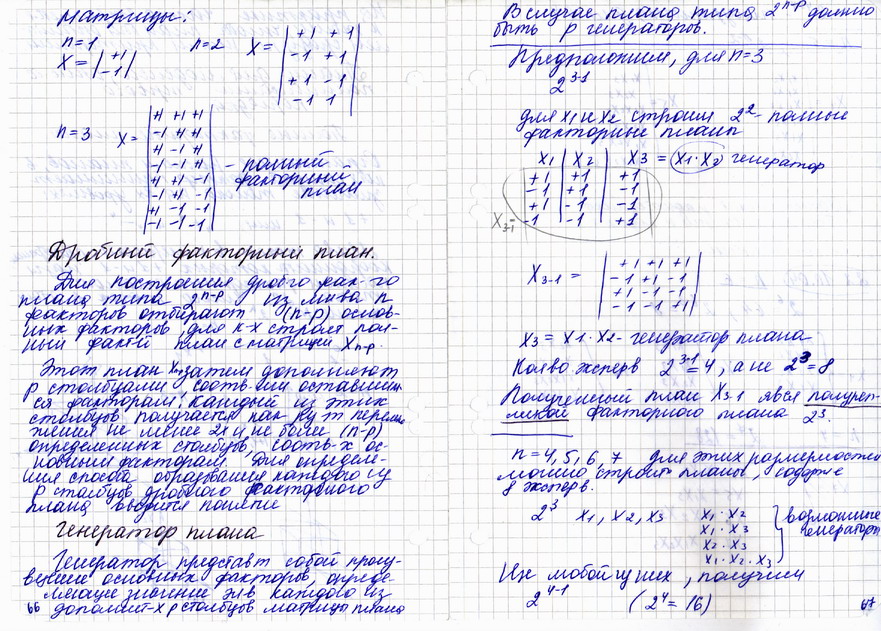 Матрицы:
n=1
X = | +1
-1 |
n=2
X = | +1 +1
-1 +1
+1 -1
-1 -1 |
n=3
X = | +1 +1 +1
-1 +1 +1
+1 -1 +1
-1 -1 +1
+1 +1 -1
-1 +1 -1
+1 -1 -1
-1 -1 -1 |
- полный
факторный
план
Дробный факторный план.
Для построения дробного фак-го
плана типа 2^n-p из мн-ва n
факторов отбирают (n-p) основ-
ных факторов, для к-х строят пол-
ный факт план с матрицей Xn-p.
Этот план затем дополняют
p столбцами, соотв-ми оставшим
ся факторам; каждый из этих
столбцов получается как рез-т перемно
жения не менее 2х и не более (n-p)
определенных столбцов, соотв-х ос-
новным факторам. Для определе-
ния способа образования каждого из
p столбцов дробного факторного
плана вводится понятие
генератор плана
Генератор представт собой произ-
ведение основных факторов, опреде-
ляющее значение эл-в каждого из
66 дополнит-х p столбцов матрицы плана
В случае плана типа 2^n-p должно
быть p генераторов.
Предположим, для n=3
2^3-1
для X1 и X2 строим 2^2 - полные
факторные планы
X1 | X2 | X3 = (X1·X2) генератор
+1 | +1 | +1
-1 | +1 | -1
+1 | -1 | -1
X3-1= -1 | -1 | +1
X3-1 = | +1 +1 +1
-1 +1 -1
+1 -1 -1
-1 -1 +1 |
X3 = X1·X2 - генератор плана
Кол-во эксперв 2^3-1=4, а не 2^3=8
Полученный план X3-1 явся полуреп-
ликой факторного плана 2^3.
n=4,5,6,7 для этих размерностей
можно строить планы, содерж-е
8 эксперв.
2^3 X1, X2, X3
X1·X2
X1·X3
X2·X3
X1·X2·X3
возможные
генераторы
Из любой из них, получим
2^4-1 (2^4=16)
67